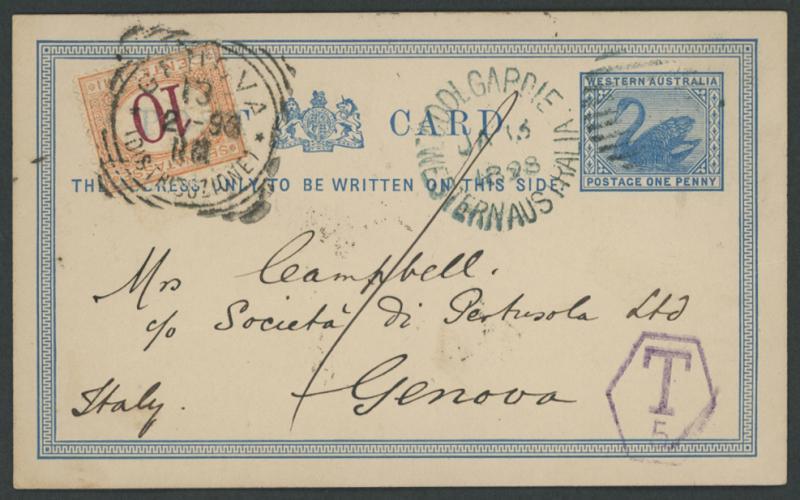 CARD
WESTERN AUSTRALIA
POSTAGE ONE PENNY
10
GENOVA
13
2 98
COOLGARDIE
JA 15
1898
WESTERN AUSTRALIA
ADDRESS ONLY TO BE WRITTEN ON THIS SIDE.
Mrs Campbell.
c/o Società di Pertusola Ltd
Genova
Italy.
T
5